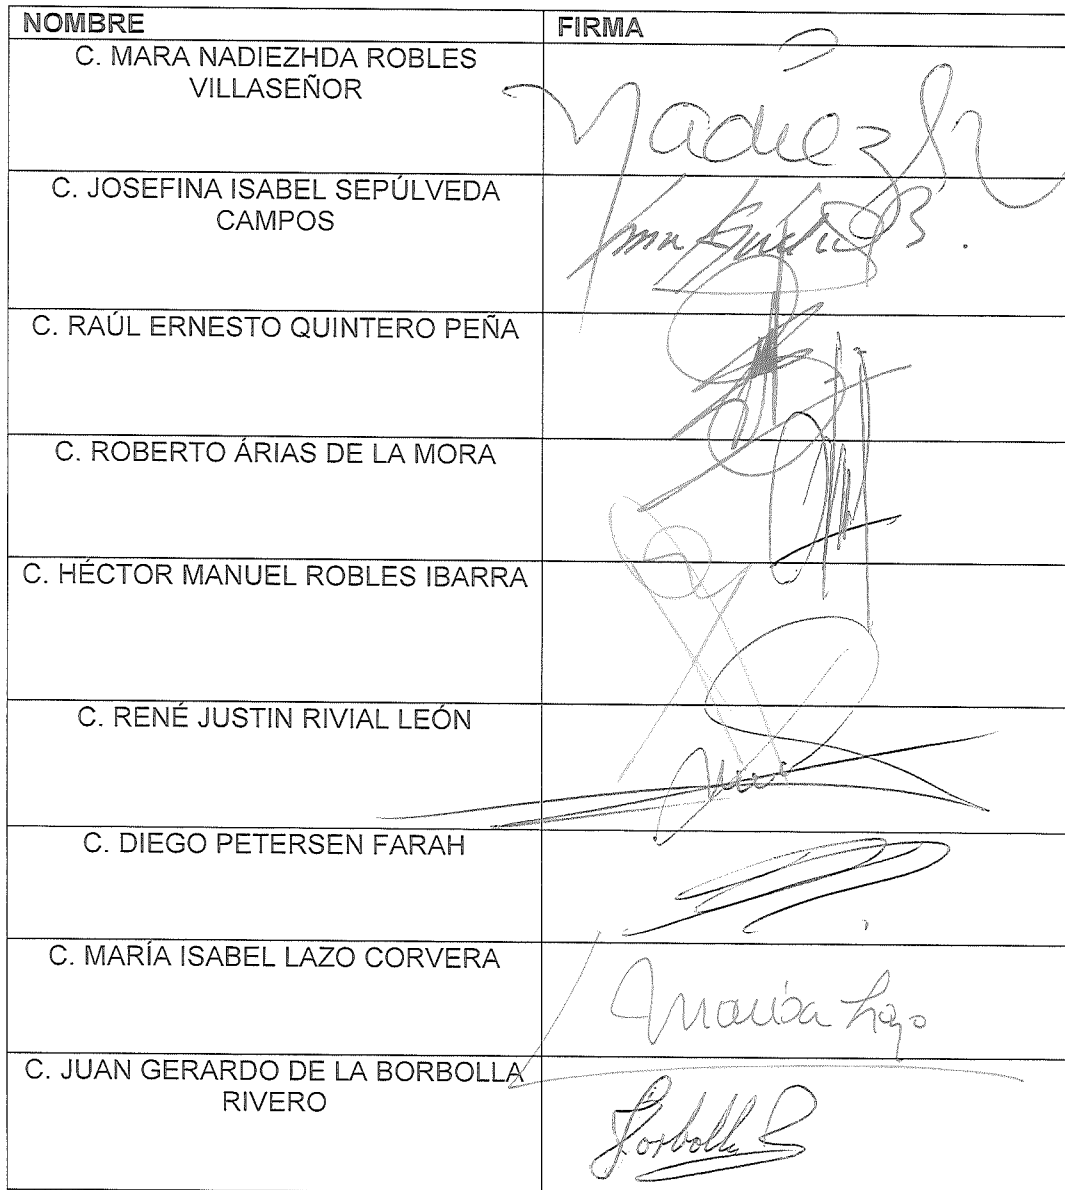 NOMBRE FIRMA
C. MARA NADIEZHDA ROBLES
VILLASEÑOR
C. JOSEFINA ISABEL SEPÚLVEDA
CAMPOS
C. RAÚL ERNESTO QUINTERO PEÑA
C. ROBERTO ÁRIAS DE LA MORA
C. HÉCTOR MANUEL ROBLES IBARRA
C. RENÉ JUSTIN RIVIAL LEÓN
C. DIEGO PETERSEN FARAH
C. MARÍA ISABEL LAZO CORVERA
Marisa Lazo
C. JUAN GERARDO DE LA BORBOLLA
RIVERO
Borbolla